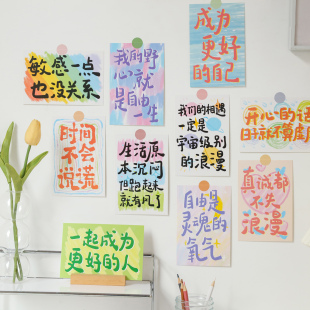 敏感一点
也没关系
我的野
心就
是自由一生
成为
更好
的自己
时间
不会
说谎
生活原
本沉闷
但跑起来
就有风了
我们的相遇
一定是
宇宙级别
的浪漫
开心的话
日子就不算虚度
自由是
灵魂的
氧气
真诚都
不失
浪漫
一起成为
更好的人